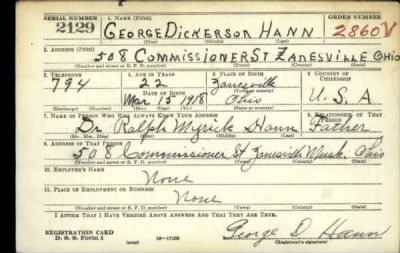 SERIAL NUMBER 1. NAME (Print) ORDER NUMBER
2129 GEORGE DICKERSON HANN 2860V
(First) (Middle) (Last)
2. ADDRESS (Print)
508 COMMISSIONER ST ZANESVILLE OHIO
(Number and street or R. F. D. number) (Town) (County) (State)
3. TELEPHONE 4. AGE IN YEARS 5. PLACE OF BIRTH 6. COUNTRY OF CITIZENSHIP
794 22 Zanesville
DATE OF BIRTH (Town or county)
Mar. 15 1918 Ohio U. S. A
(Exchange) (Number) (Mo.) (Day) (Yr.) (State or country)
7. NAME OF PERSON WHO WILL ALWAYS KNOW YOUR ADDRESS 8. RELATIONSHIP OF THAT PERSON
Dr. Ralph Myrick Hann Father
(Mr., Mrs., Miss) (First) (Middle) (Last)
9. ADDRESS OF THAT PERSON
508 Commissioner St Zanesville Musk. Ohio
(Number and street or R. F. D. number) (Town) (County) (State)
10. EMPLOYER'S NAME
None
11. PLACE OF EMPLOYMENT OR BUSINESS
None
(Number and street or R. F. D. number) (Town) (County) (State)
I AFFIRM THAT I HAVE VERIFIED ABOVE ANSWERS AND THAT THEY ARE TRUE.
REGISTRATION CARD
D. S. S. Form 1 16-17105 George D Hann
(Registrant's signature)